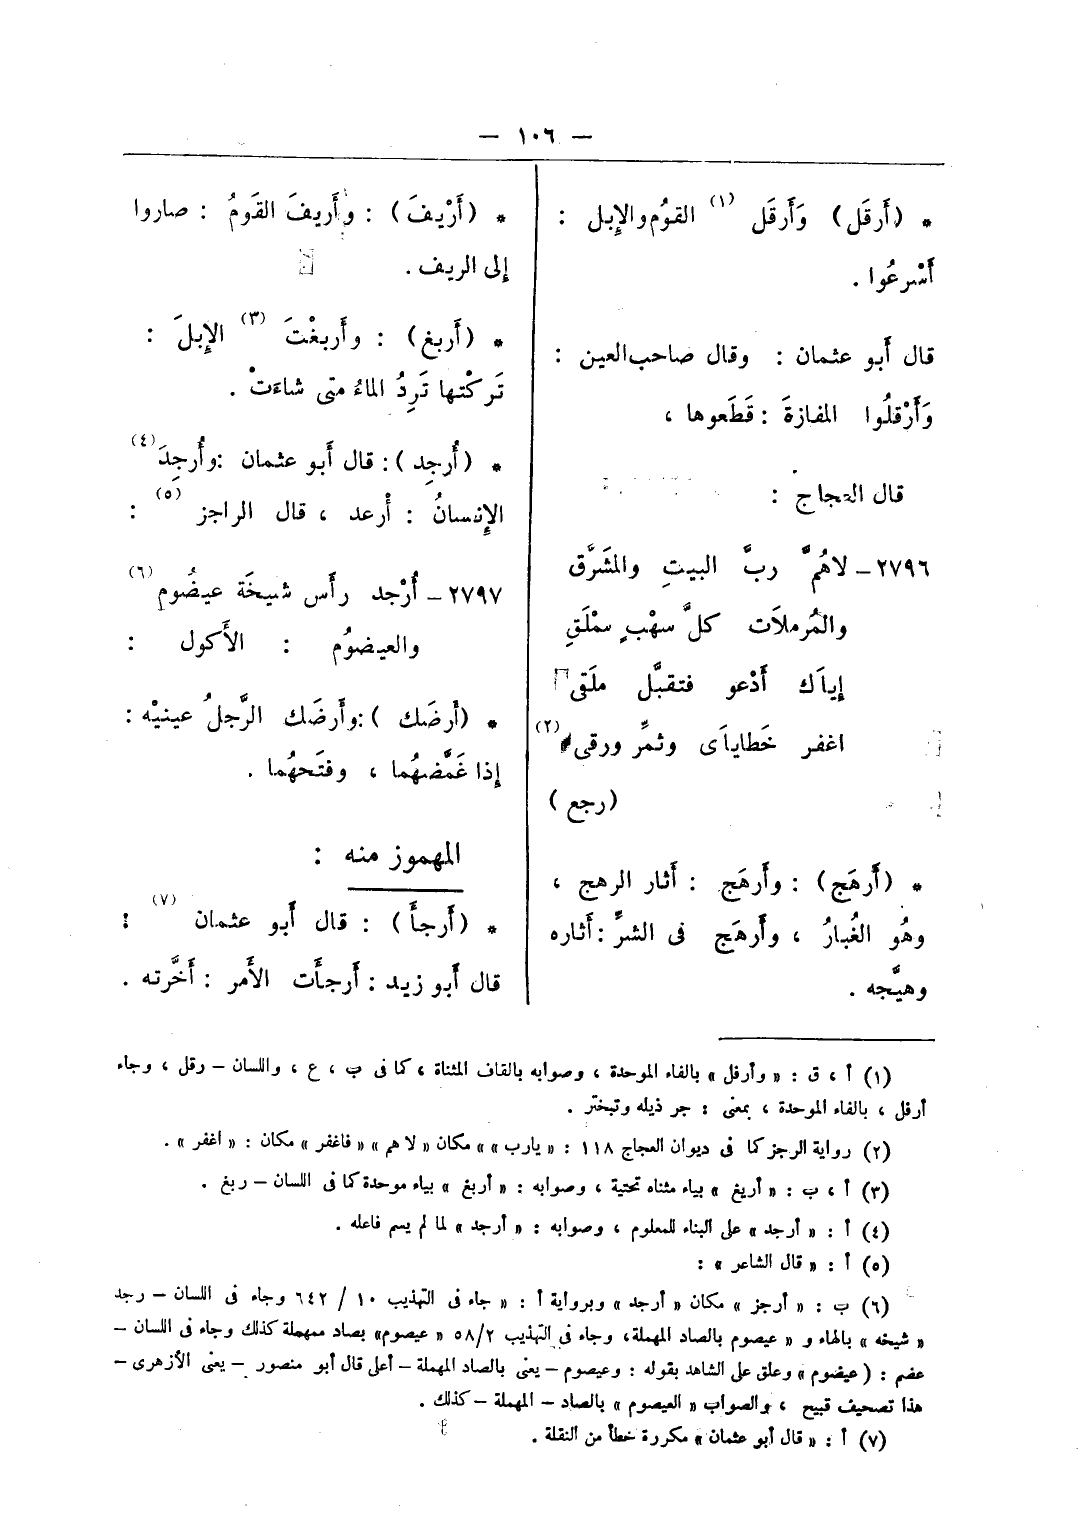 — ١٠٦ —
* (أَرقَل) وَأَرقَل (١) القوُم والإِبل :
أَسْرعُوا .
قال أَبو عثمان : وقال صاحب العين :
وَأَرْقلُوا المفازةَ : قَطَعوها ،
قال العجاج :
٢٧٩٦ – لاهُمَّ ربَّ البيتِ والمشَرَّق
والمُرملاَت كلَّ سهْبٍ سمْلَقِ
إياَك أَدْعو فتقبَّل ملَقى
اغفر خَطاياَى وثمرِّ ورقى (٢)
(رجع)
* (أَرهَج) : وأَرهَج : أَثار الرهج ،
وهُو الغُبارُ ، وأَرهَج فى الشرِّ : أَثاره
وهيَّجه .
* (أَرْيفَ) : وأَريفَ القَومُ : صاروا
إِلى الريف .
* (أَربغ) : وأَربغْتَ (٣) الإِبلَ :
تَركْتها تَرِدُ الماءُ متى شاءَتْ .
* (أُرجِد) : قال أَبو عثمان : وأُرجِدَ (٤)
الإِنسانُ : أُرعد ، قال الراجز (٥) :
٢٧٩٧ – أُرْجد رأَس شيخَة عيضُوم (٦)
والعيضوُم : الأَكول :
* (أَرضَك) : وأَرضَك الرَّجلُ عينيْه :
إِذا غَمَّضهُما ، وفتَحهُما .
المهموز منه :
* (أَرجأَ) : قال أَبو عثمان (٧) :
قال أَبو زيد : أَرجأَت الأَمر : أَخَّرته .
(١) أ ، ق : « وأرفل » بالفاء الموحدة ، وصوابه بالقاف المثناة ، كما فى ب ، ع ، واللسان – رقل ، وجاء
أرفل ، بالفاء الموحدة ، بمعنى : جر ذيله وتبختر .
(٢) رواية الرجز كما فى ديوان العجاج ١١٨ : « يارب » » مكان « لا هم » « فاغفر » مكان : « اغفر » .
(٣) أ ، ب : « أريغ » بياء مثناه تحتية ، وصوابه : « أربغ » بياء موحدة كما فى اللسان – ربغ .
(٤) أ : « أرجد » على البناء للمعلوم ، وصوابه : « أرجد » لما لم يسم فاعله .
(٥) أ : « قال الشاعر » :
(٦) ب : « أرجز » مكان « أرجد » وبرواية أ : « جاء فى التهذيب ١٠ / ٦٤٢ وجاء فى اللسان – رجد
« شيخه » بالهاء و « عيصوم بالصاد المهملة ، وجاء فى التهذيب ٥٨/٢ « عيصوم » بصاد مهملة كذلك وجاء فى اللسان –
عضم : ( عيضوم » وعلق على الشاهد بقوله : وعيصوم – يعنى بالصاد المهملة – أعلى قال أبو منصور – يعنى الأزهرى –
هذا تصحيف قبيح ، والصواب « العيصوم » بالصاد – المهملة – كذلك .
(٧) أ : « قال أبو عثمان » مكررة خطأ من النقلة .